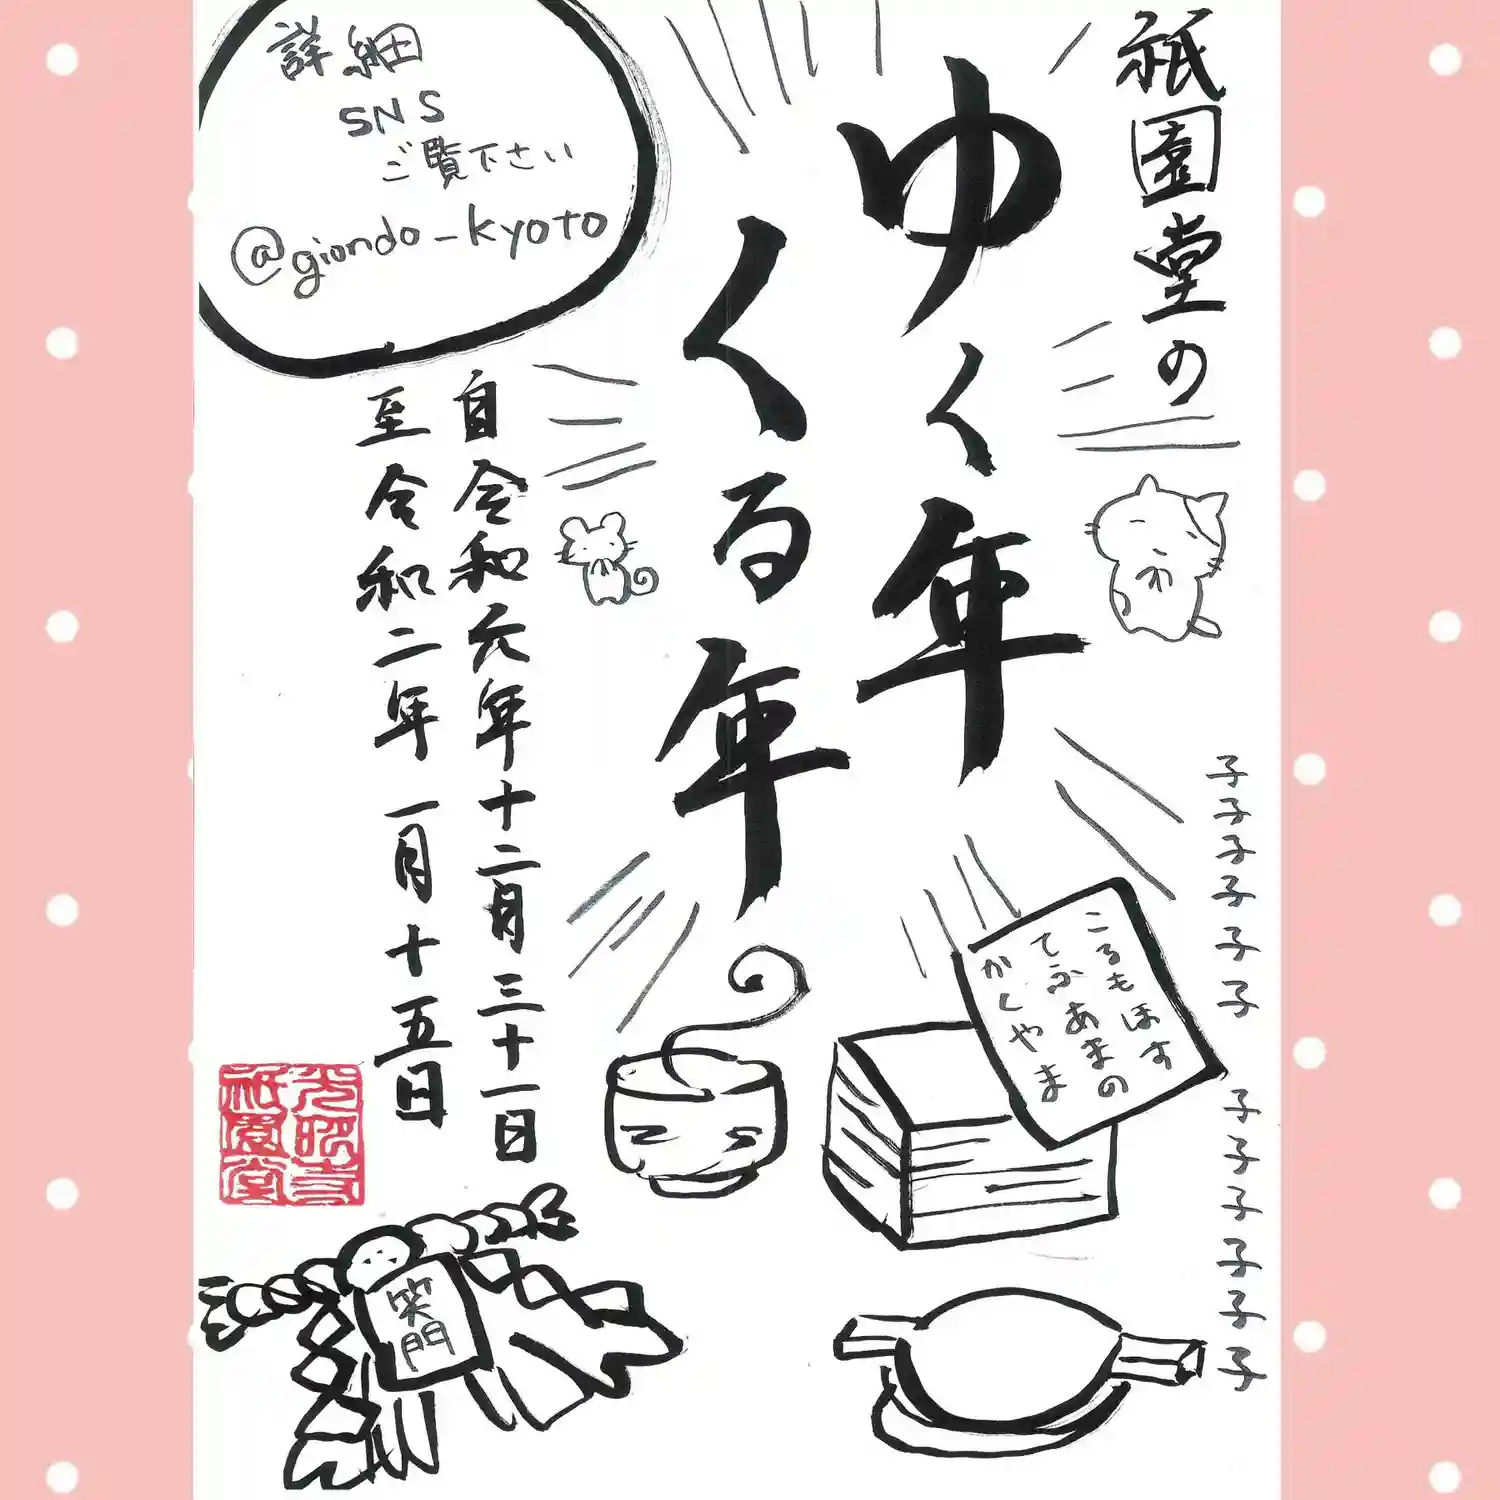 祇園堂の
ゆく年
くる年
自令和元年十二月三十一日
至令和二年一月十五日
詳細
SNS
ご覧下さい
@giondo_kyoto
子子子子子子
子子子子子子
ころもほす
てふあまの
かくやま
笑門
光照寺
祇園堂